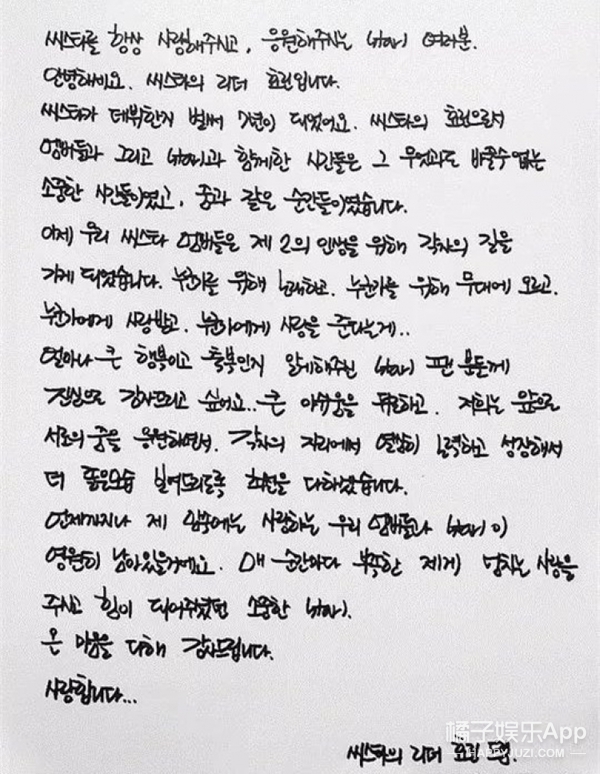 씨스타를 항상 사랑해주시고, 응원해주시는 STAR1 여러분.
안녕하세요. 씨스타의 리더 효린입니다.
씨스타가 데뷔한지 벌써 7년이 되었어요. 씨스타의 효린으로서
멤버들과 그리고 STAR1과 함께한 시간들은 그 무엇과도 바꿀수 없는
소중한 시간들이였고, 꿈과 같은 순간들이였습니다.
이제 우리 씨스타 멤버들은 제 2의 인생을 위해 각자의 길을
가게 되었습니다. 누군가를 위해 노래하고. 누군가를 위해 무대에 오르고.
누군가에게 사랑받고. 누군가에게 사랑을 준다는게..
얼마나 큰 행복이고 축복인지 알게해주신 STAR1 팬 분들께
진심으로 감사드리고 싶어요.. 큰 아쉬움을 뒤로하고. 저희는 앞으로
서로의 꿈을 응원하면서. 각자의 자리에서 열심히 노력하고 성장해서
더 좋은모습 보여드리도록 최선을 다하겠습니다.
언제까지나 제 맘속에는 사랑하는 우리 멤버들과 STAR1이
영원히 남아있을거에요. 매 순간마다 부족한 제게 넘치는 사랑을
주시고 힘이 되어주셨던 소중한 STAR1.
온 마음을 다해 감사드립니다.
사랑합니다...
씨스타의 리더 효린 드림.
橘子娱乐App
HAPPYJUZI.COM